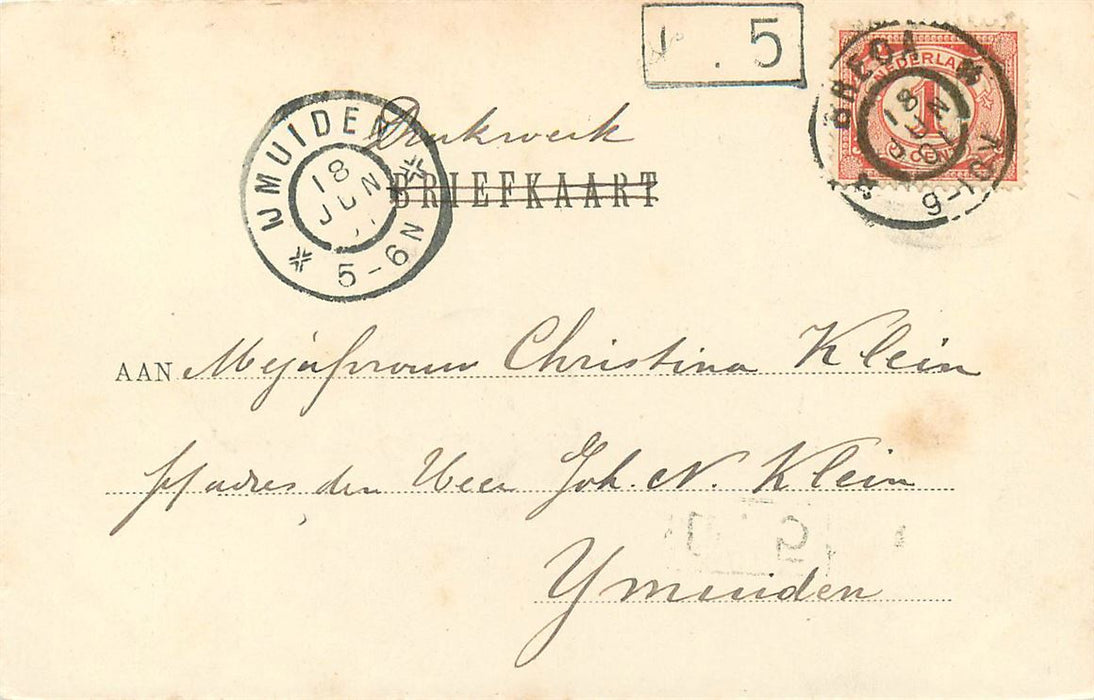 . 5
NEDERLAND
1
BREDA
18 JUN
9-10V
IJMUIDEN
18
JUN
5-6N
Drukwerk
BRIEFKAART
AAN Mejufvrouw Christina Klein
p/adres den Heer Joh. N. Klein
Ymuiden